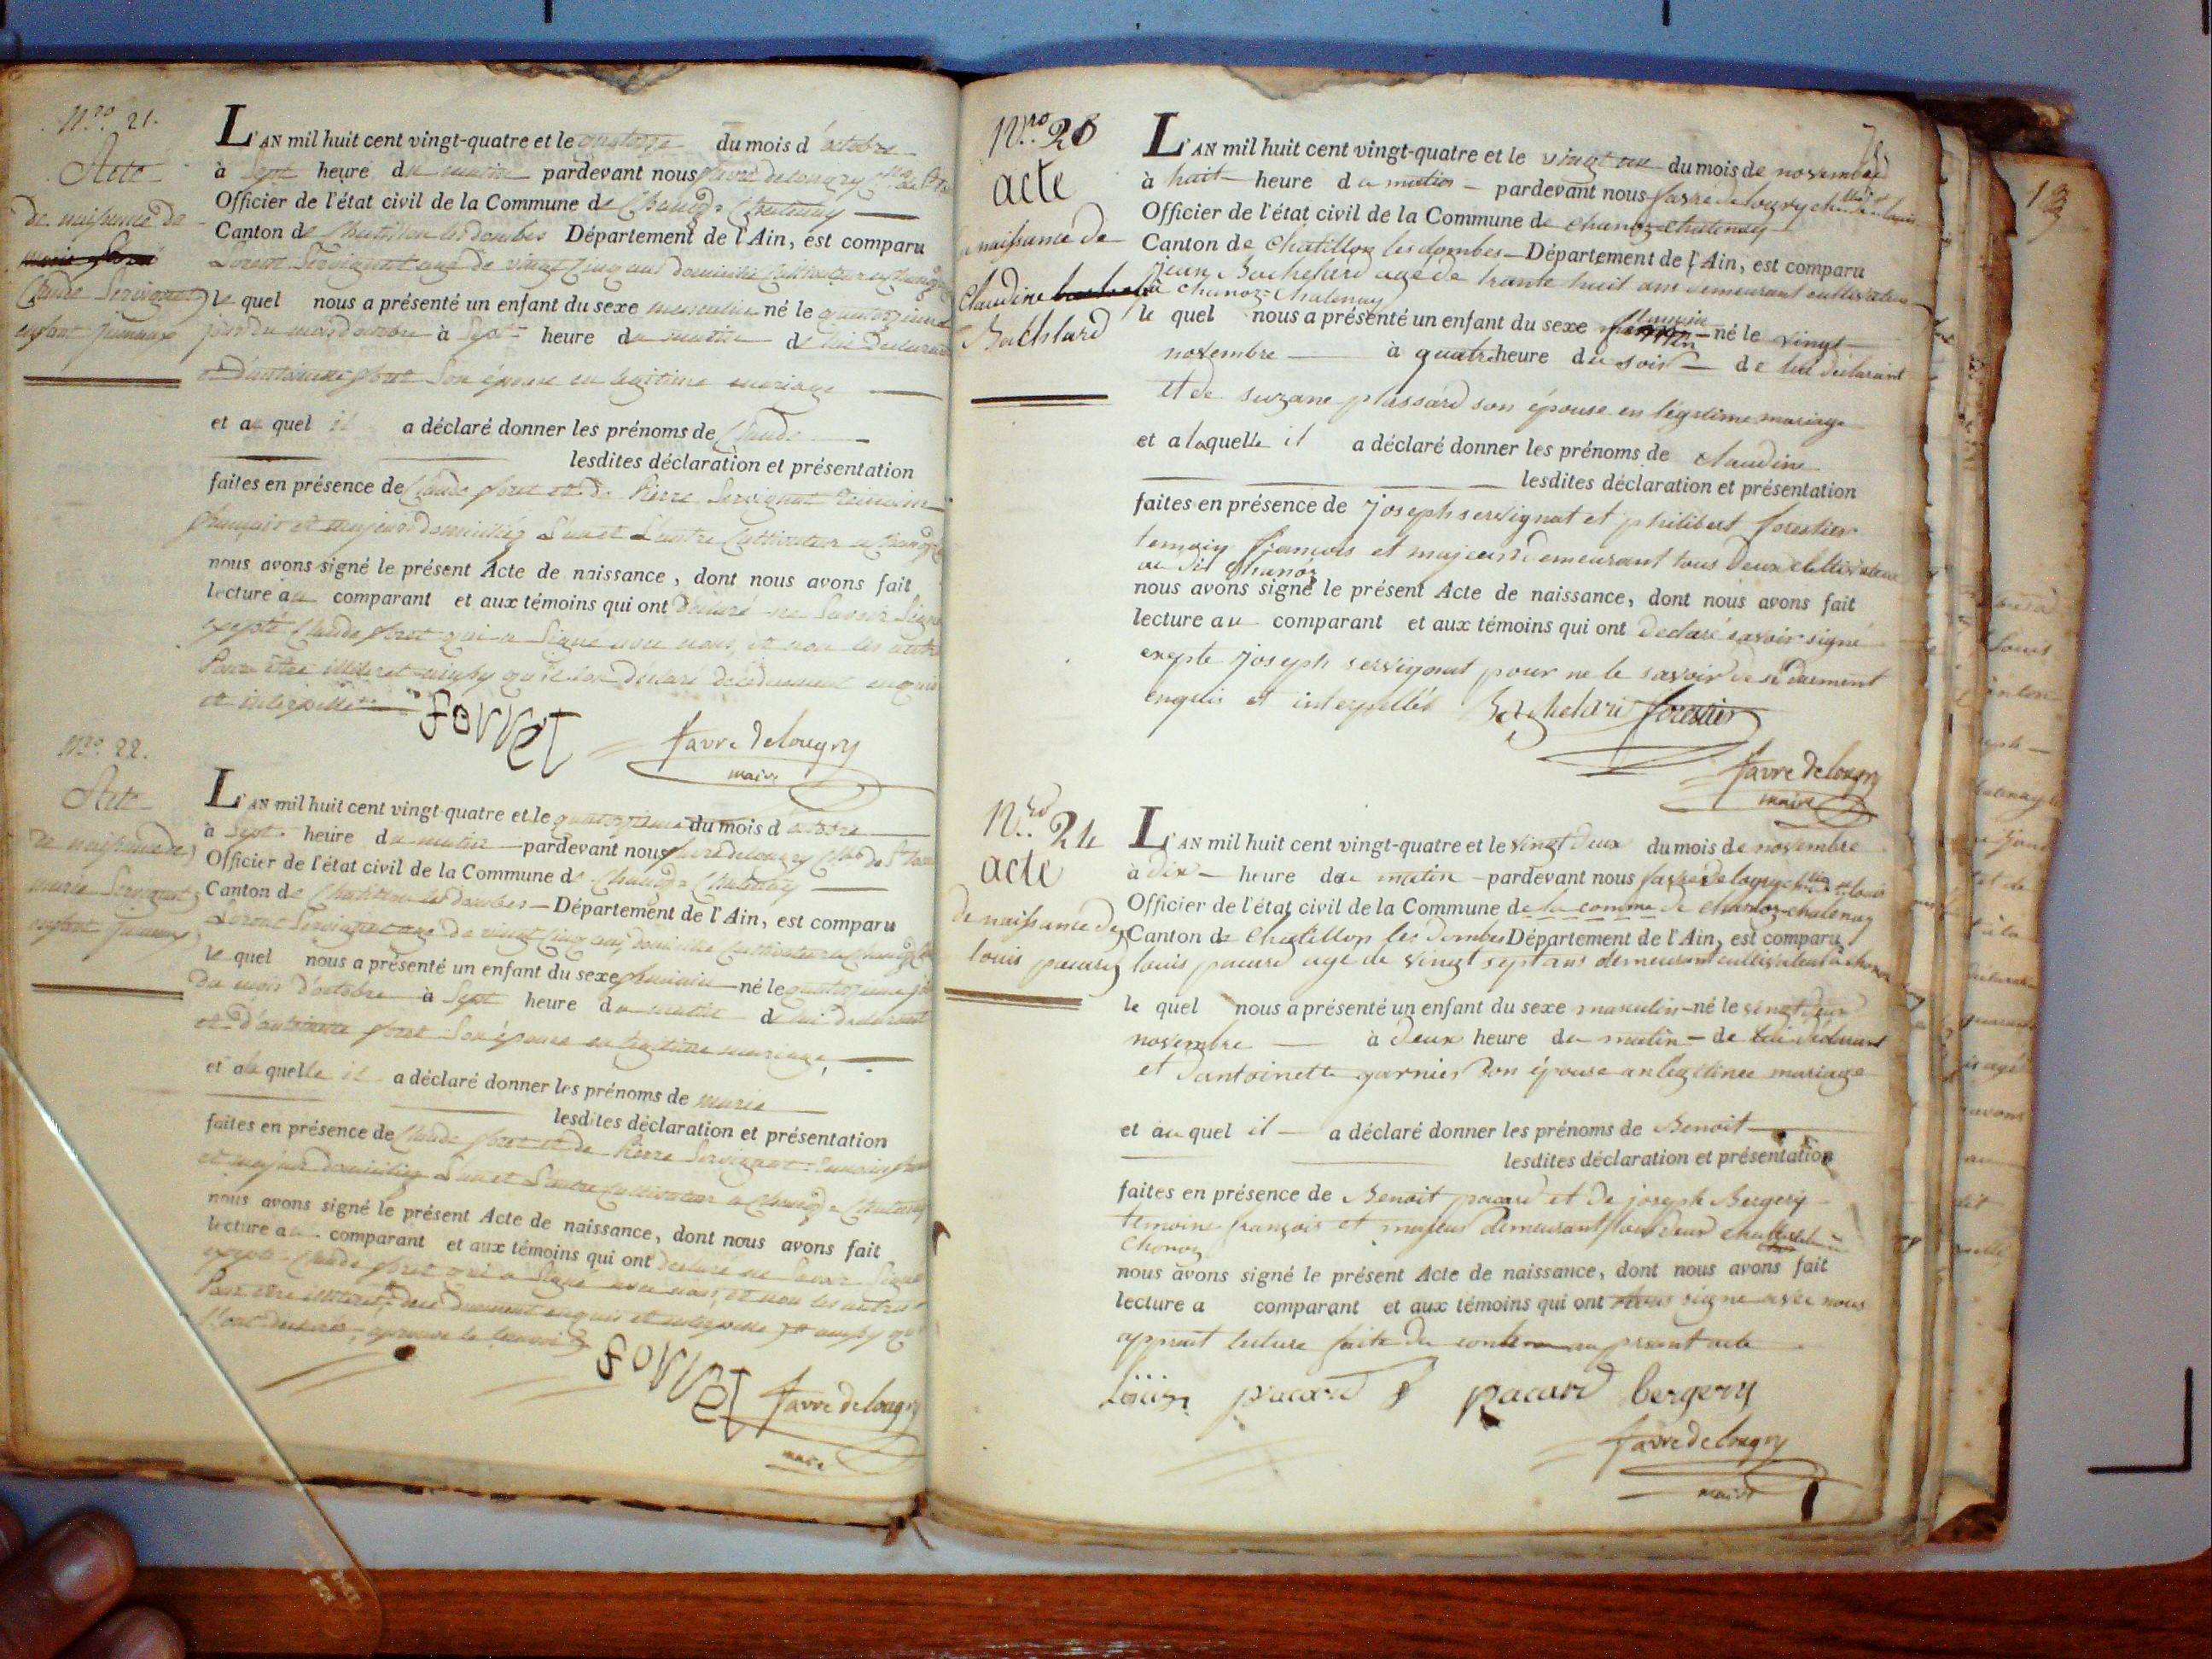 Nro. 21.
Acte
de naissance de
Claude Servignat
enfant jumeaux
L'AN mil huit cent vingt-quatre et le quatorze du mois d'octobre
à Sept heure du matin pardevant nous favre delougry
Officier de l'état civil de la Commune de Chanoz= Chatenay
Canton de Chatillon les dombes Département de l'Ain, est comparu
Servignat age de vingt Cinq ans domicilié Cultivateur a Chanoz
le quel nous a présenté un enfant du sexe masculin né le quatorzieme
jour du mois d'octobre à Sept heure du matin de lui declarant
et d'antoinette foret Son épouse en légitime mariage
et au quel il a déclaré donner les prénoms de Claude
lesdites déclaration et présentation
faites en présence de Claude foret et de Pierre Servignat temoins
français et majeurs domiciliés L'un et L'autre Cultivateur a Chanoz
nous avons signé le présent Acte de naissance, dont nous avons fait
lecture au comparant et aux témoins qui ont déclaré ne Savoir Signer
excepté Claude foret qui a Signé avec nous, et non les autres
Pour être illiteret ainsy qu'ils ont déclaré de ce dument enquis
et interpellé
forret favre delougry
maire
Nro. 22.
Acte
de naissance de
marie Servignat
enfant jumeaux
L'AN mil huit cent vingt-quatre et le quatorzieme du mois d'octobre
à Sept heure du matin pardevant nous favre delougry
Officier de l'état civil de la Commune de Chanoz= Chatenay
Canton de Chatillon les dombes Département de l'Ain, est comparu
Servignat age de vingt Cinq ans, domicilie Cultivateur a Chanoz
le quel nous a présenté un enfant du sexe féminin né le quatorzieme
du mois d'octobre à Sept heure du matin de lui declarant
et d'antoinette foret Son épouse en légitime mariage,
et a la quelle il a déclaré donner les prénoms de marie
lesdites déclaration et présentation
faites en présence de Claude foret et de Pierre Servignat temoins
et majeur domiciliés L'un et L'autre Cultivateur a Chanoz= Chatenay
nous avons signé le présent Acte de naissance, dont nous avons fait
lecture au comparant et aux témoins qui ont declaré ne Savoir Signer
excepté Claude foret qui a Signé avec nous, et non les autres
Pour être illiteret, de ce dument enquis et interpellé ainsy qu'
l'ont declaré, aprouve le renvoi
forret favre delougry
maire
Nro. 23
acte
naissance de
claudine
Bachelard
L'AN mil huit cent vingt-quatre et le vingt un du mois de novembre
à huit heure du matin pardevant nous favre delougry
Officier de l'état civil de la Commune de chanoz chatenay
Canton de chatillon les dombes Département de l'Ain, est comparu
jean Bachelard agé de trante huit ans demeurant cultivateur
a chanoz= chatenay
le quel nous a présenté un enfant du sexe féminin né le vingt
novembre à quatre heure du soir de lui déclarant
et de suzane plassard son épouse en légitime mariage
et a laquelle il a déclaré donner les prénoms de claudine
lesdites déclaration et présentation
faites en présence de joseph servignat et philibert forestier
temoin françois et majeur demeurant tous deux cultivateur
au dit chanoz
nous avons signé le présent Acte de naissance, dont nous avons fait
lecture au comparant et aux témoins qui ont declaré savoir signé
exepte joseph servignat pour ne le savoir de ce dument
enquis et interpellés Bachelard forestier
favre delougry
maire
Nro. 24
acte
de naissance de
louis pacard
L'AN mil huit cent vingt-quatre et le vingt deux du mois de novembre
à dix heure du matin pardevant nous favre delougry
Officier de l'état civil de la Commune de la comme de chanoz chatenay
Canton de chatillon les dombes Département de l'Ain, est comparu
louis pacard age de vingt sept ans demeurant cultivateur a chanoz
le quel nous a présenté un enfant du sexe masculin né le vingt deux
novembre à deux heure du matin de lui déclarant
et dantoinette garnier son épouse an legitime mariage
et au quel il a déclaré donner les prénoms de Benoit
lesdites déclaration et présentation
faites en présence de Benoit pacard et de joseph Bergery
temoins françois et majeur demeurant tous deux
chonoz
nous avons signé le présent Acte de naissance, dont nous avons fait
lecture a comparant et aux témoins qui ont signe avec nous
lecture faite du contenu au present acte
Louis pacard pacard bergery
favre delougry
maire